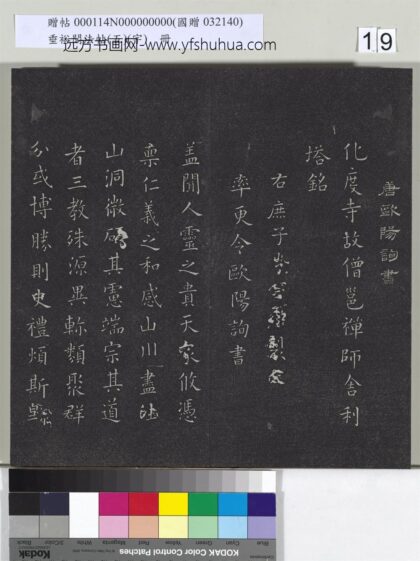 贈帖 000114N000000000(國贈 032140)
垂裕閣法帖(五)(宅) 冊
远方书画网-www.yfshuhua.com
19
唐歐陽詢書
化度寺故僧邕禪師舍利
塔銘
右庶子李百藥製文
率更令歐陽詢書
蓋聞人靈之貴天象攸憑
稟仁義之和感山川之
山洞微研其慮端宗其道
者三教殊源異軫類聚群
分或博勝則史禮煩斯
Blue Cyan Green Yellow Red Magenta White 3/Color Black
KODAK Color Control Patches
Kodak